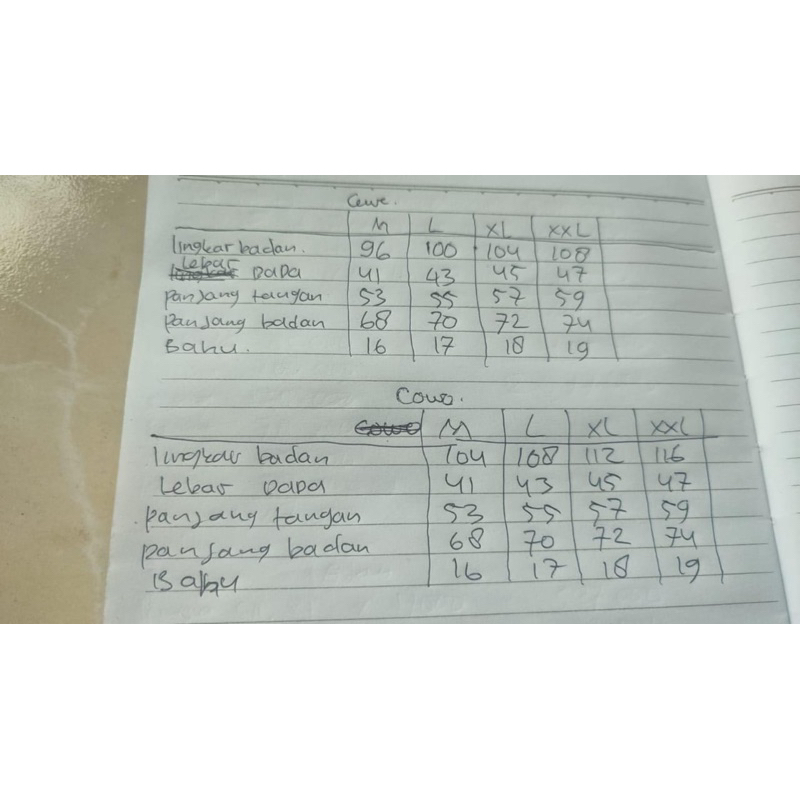 Cewe.
M L XL XXL
lingkar badan. 96 100 104 108
Lebar DaDa 41 43 45 47
Panjang tangan 53 55 57 59
Panjang badan 68 70 72 74
Bahu. 16 17 18 19
Cowo.
M L XL XXL
lingkar badan 104 108 112 116
Lebar DaDa 41 43 45 47
panjang tangan 53 55 57 59
panjang badan 68 70 72 74
Bahu 16 17 18 19